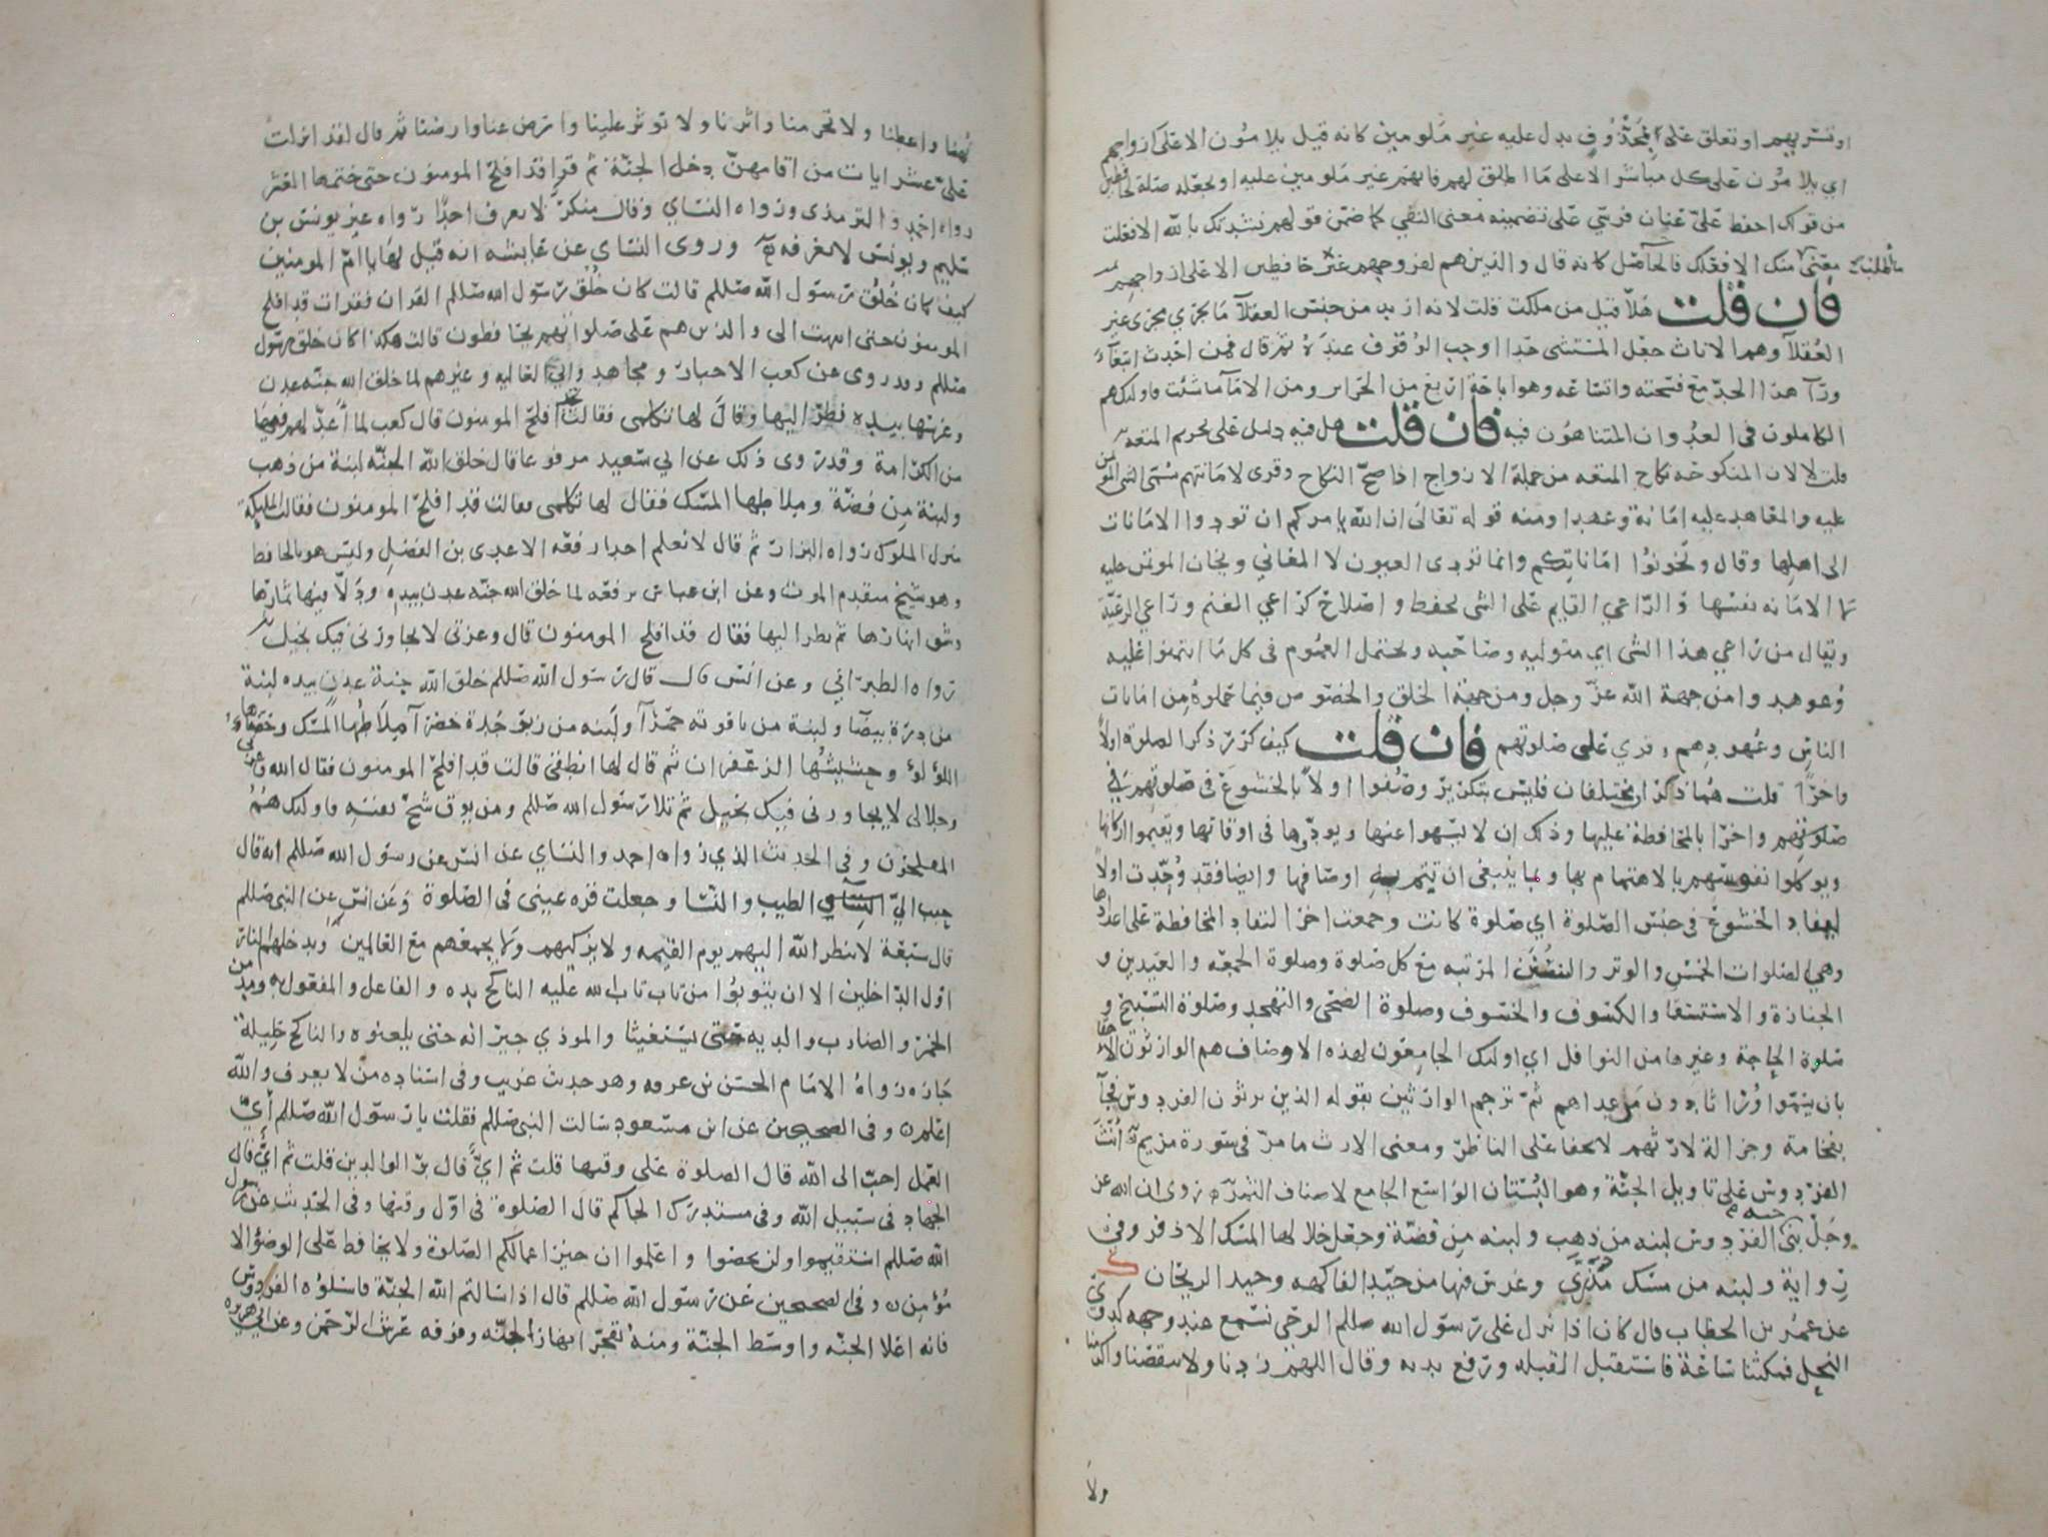 او تسريهم او تعلق على بمحذوف يدل عليه غير ملومين كانه قيل يلامون الا على ازواجهم
اي يلامون على كل مباشر الا على ما اطلق لهم فانهم غير ملومين عليه او تجعله صلة لحافظين
من قولك احفظ علىّ عنان فرسي على تضمينه معنى النفي كما ضمن قولهم نشدتك بالله الا فعلت
معنى ما طلبت منك الا فعلك فالحاصل كانه قال والذين هم لفروجهم غير حافظين الا على ازواجهم
فان قلت هلا قيل من ملكت قلت لانه اريد من جنس العقلآ ما يجري مجرى غير
العقلآ وهم الاناث جعل المستثنى حدا اوجب الوقوف عنده ثم قال فمن احدث ابتغآء
ورآ هذا الحد مع فسحته واتساعه وهو اباحة اربع من الحراير ومن الامآ ما شئت فاوليك هم
الكاملون في العدوان المتناهون فيه فان قلت هل فيه دليل على تحريم المتعه
قلت لا لان المنكوحه نكاح المتعه من جملة الازواج اذا صح النكاح وقرى لامانتهم سمى الشى الموتمن
عليه والمعاهد عليه امانة وعهدا ومنه قوله تعالى ان الله يامركم ان تودوا الامانات
الى اهلها وقال وتخونوا اماناتكم وانما تودى العيون لا المعاني ويخان الموتمن عليه
لا الامانه نفسها والراعي القايم على الشى بحفظ واصلاح كراعي الغنم وراعي الرعية
ويقال من راعي هذا الشى اي متوليه وصاحبه ويحتمل العموم في كل ما ايتمنوا عليه
وعوهدوا من جهة الله عز وجل ومن جهة الخلق والخصوص فيما حملوه من امانات
الناس وعهودهم وقري على صلوتهم فان قلت كيف كرر ذكر الصلوة اولا
واخرا قلت هما ذكران مختلفان فليس بتكرير وصفوا اولا بالخشوع في صلوتهم في
صلوتهم واخرا بالمحافظة عليها وذلك ان لا يسهوا عنها ويودوها في اوقاتها ويقيموا اركانها
ويوكلوا نفوسهم بالاهتمام بها وبما ينبغي ان تتم به اوصافها وايضا فقد وحدت اولا
ليفاد الخشوع في جنس الصلوة اي صلوة كانت وجمعت اخرا لتفاد المحافظة على اعدادها
وهي الصلوات الخمس والوتر والسنن المرتبه مع كل صلوة وصلوة الجمعه والعيدين و
الجنازة والاستسقا والكسوف والخسوف وصلوة الضحى والتهجد وصلوة التسبيح و
صلوة الحاجة وغيرها من النوافل اي اوليك الجامعون لهذه الاوصاف هم الوارثون الاحقا
بان يسموا ورّاثا دون من عداهم ثم ترجم الوارثين بقوله الذين يرثون الفردوس فجآ
بفخامة وجزالة لارثهم لا تخفا على الناظر ومعنى الارث ما مر في سورة مريم انّث
الفردوس على تاويل الجنة وهو البستان الواسع الجامع لاصناف الثمر روى ان الله عز
وجل بنى جنه الفردوس لبنه من ذهب ولبنه من فضة وجعل خلالها المسك الاذفر وفي
رواية ولبنه من مسك مذرّى وغرس فيها من جيد الفاكهه وجيد الريحان
عن عمر بن الخطاب قال كان اذا نزل على رسول الله صللم الوحي نسمع عند وجهه كدوي
النحل فمكثنا ساعة فاستقبل القبله ورفع يديه وقال اللهم زدنا ولا تنقصنا واكرمنا
ولا
تهنا واعطنا ولا تحرمنا واثرنا ولا توثر علينا وارض عنا وارضنا ثم قال لقد انزلت
علىّ عشر ايات من اقامهن دخل الجنة ثم قرا قد افلح المومنون حتى ختمها العشر
رواه احمد والترمذى ورواه النساي وقال منكر لا يعرف احد رواه غير يونس بن
سليم ويونس لا نعرفه وروى النساى عن عايشه انه قيل لها يا ام المومنين
كيف كان خلق رسول الله صللم قالت كان خلق رسول الله صللم القران فقرات قد افلح
المومنون حتى انتهت الى والذين هم على صلواتهم يحافظون قالت هكذا كان خلق رسول
صللم وقد روى عن كعب الاحبار ومجاهد وابي العاليه وغيرهم لما خلق الله جنه عدن
وغرسها بيده نظر اليها وقال لها تكلمى فقالت قد افلح المومنون قال كعب لما أعدّ لهم فيها
من الكرامة وقد روى ذلك عن ابي سعيد مرفوعا قال خلق الله الجنه لبنة من ذهب
ولبنة من فضة وملاطها المسك فقال لها تكلمى فقالت قد افلح المومنون فقالت المليكة
منزل الملوك رواه البزار ثم قال لا نعلم احدا رفعه الا عدى بن الفضل وليس هو بالحافظ
وهو شيخ متقدم الموت وعن ابن عباس يرفعه لما خلق الله جنه عدن بيده ودلّا فيها ثمارها
وشق انهارها ثم نظر اليها فقال قد افلح المومنون قال وعزتى لا يجاورنى فيك بخيل
رواه الطبراني وعن انس قال قال رسول الله صللم خلق الله جنة عدن بيده لبنة
من درة بيضا ولبنة من ياقوته حمرآ ولبنه من زبرجدة خضرآ ملاطها المسك وحصباوها
اللؤلؤ وحشيشها الزعفران ثم قال لها انطقى قالت قد افلح المومنون فقال الله وعزتى
وجلالى لا يجاورنى فيك بخيل ثم تلا رسول الله صللم ومن يوق شح نفسه فاوليك هم
المفلحون وفي الحديث الذي رواه احمد والنساي عن انس عن رسول الله صللم انه قال
حبب اليّ الطيب والنسا وجعلت قره عينى في الصلوة وعن انس عن النبى صللم
قال سبعة لا ينظر الله اليهم يوم القيمه ولا يزكيهم ولا يجمعهم مع العالمين ويدخلهم النار
اول الداخلين الا ان يتوبوا من تاب تاب الله عليه الناكح يده والفاعل والمفعول به ومدمن
الخمر والضارب والديه حتى يستغيثا والموذي جيرانه حتى يلعنوه والناكح حليلة
جاره رواه الامام الحسن بن عرفه وهو حديث غريب وفى اسناده من لا يعرف والله
اعلم وفى الصحيحين عن ابن مسعود سالت النبى صللم فقلت يا رسول الله صللم أيّ
العمل احب الى الله قال الصلوة على وقتها قلت ثم ايّ قال بر الوالدين قلت ثم ايّ قال
الجهاد في سبيل الله وفى مستدرك الحاكم قال الصلوة في اول وقتها وفى الحديث عن رسول
الله صللم استقيموا ولن تحصوا واعلموا ان خير اعمالكم الصلوة ولا يحافظ على الوضؤ الا
مؤمن وفى الصحيحين عن رسول الله صللم قال اذا سالتم الله الجنة فاسلوه الفردوس
فانه اعلا الجنه واوسط الجنة ومنه تفجر انهار الجنه وفوقه عرش الرحمن وعن ابي هريره